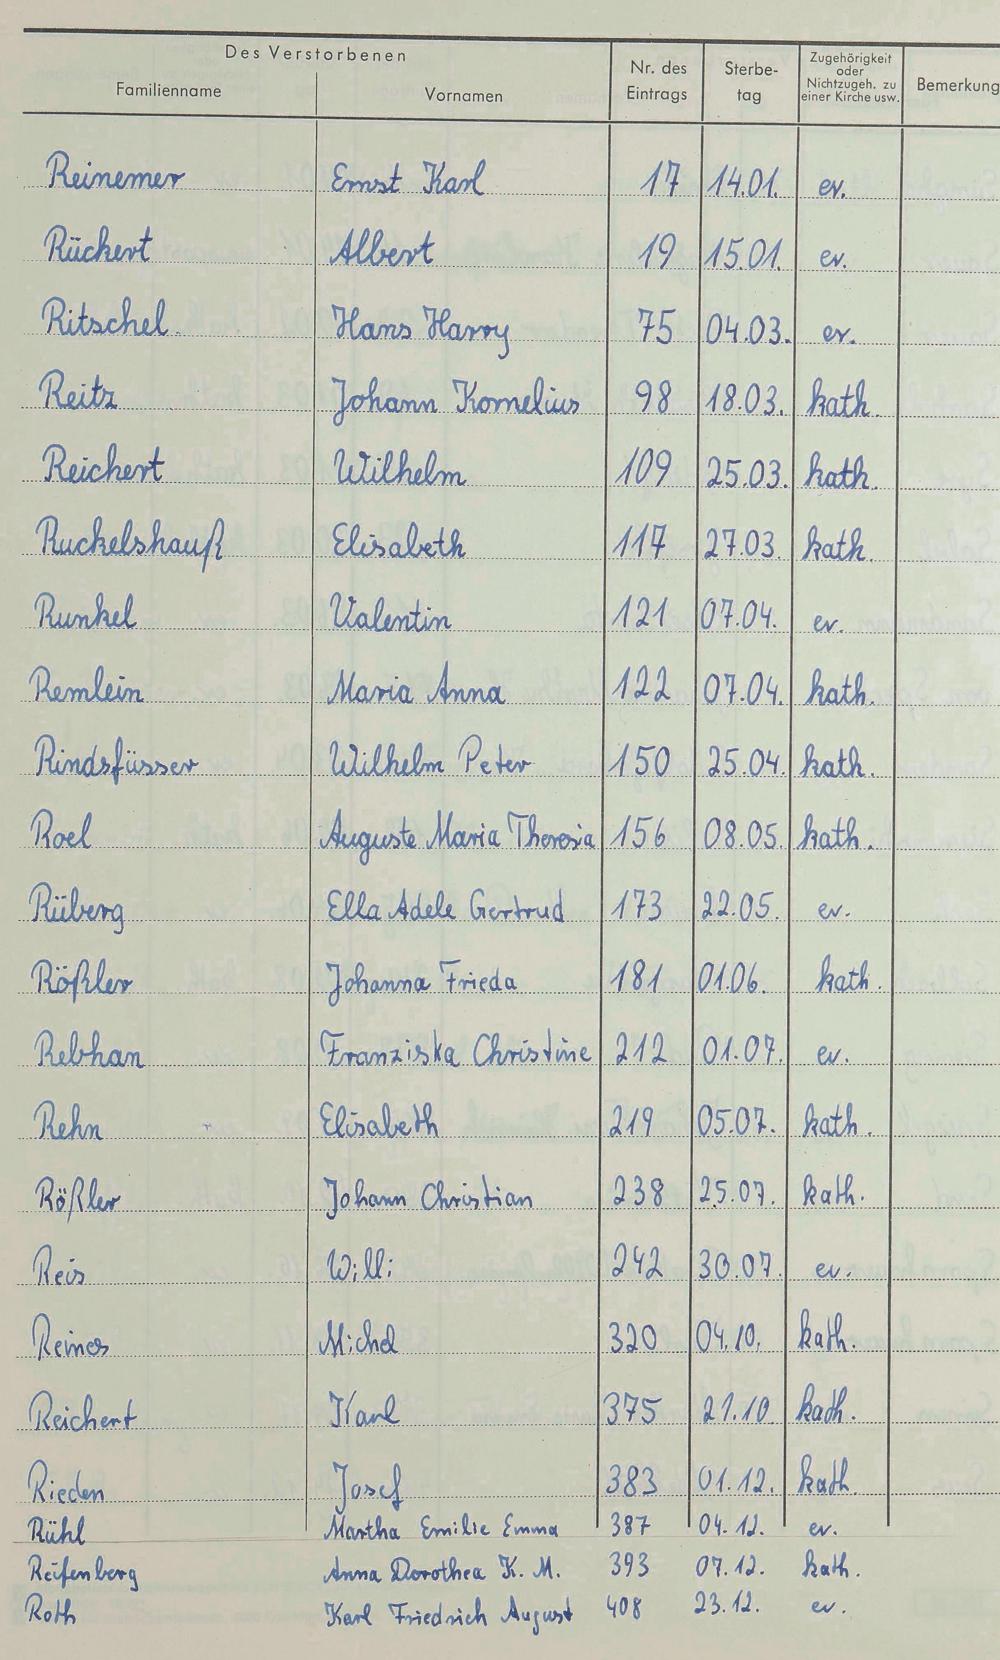 Des Verstorbenen
Familienname Vornamen Nr. des Eintrags Sterbe-tag Zugehörigkeit oder Nichtzugeh. zu einer Kirche usw. Bemerkung
Reinemer Ernst Karl 17 14.01. ev.
Rückert Albert 19 15.01. ev.
Ritschel Hans Harry 75 04.03. ev.
Reitz Johann Kornelius 98 18.03. kath.
Reichert Wilhelm 109 25.03. kath.
Ruckelshauß Elisabeth 117 27.03. kath.
Runkel Valentin 121 07.04. ev.
Remlein Maria Anna 122 07.04. kath.
Rindsfüsser Wilhelm Peter 150 25.04. kath.
Roel Auguste Maria Theresia 156 08.05. kath.
Rüberg Ella Adele Gertrud 173 22.05. ev.
Rößler Johanna Frieda 181 01.06. kath.
Rebhan Franziska Christine 212 01.07. ev.
Rehn Elisabeth 219 05.07. kath.
Rößler Johann Christian 238 25.07. kath.
Reis Willi 242 30.07. ev.
Reines Michel 320 04.10. kath.
Reichert Karl 375 21.10 kath.
Rieden Josef 383 01.12. kath.
Rühl Martha Emilie Emma 387 04.12. ev.
Reifenberg Anna Dorothea K. M. 393 07.12. kath.
Roth Karl Friedrich August 408 23.12. ev.